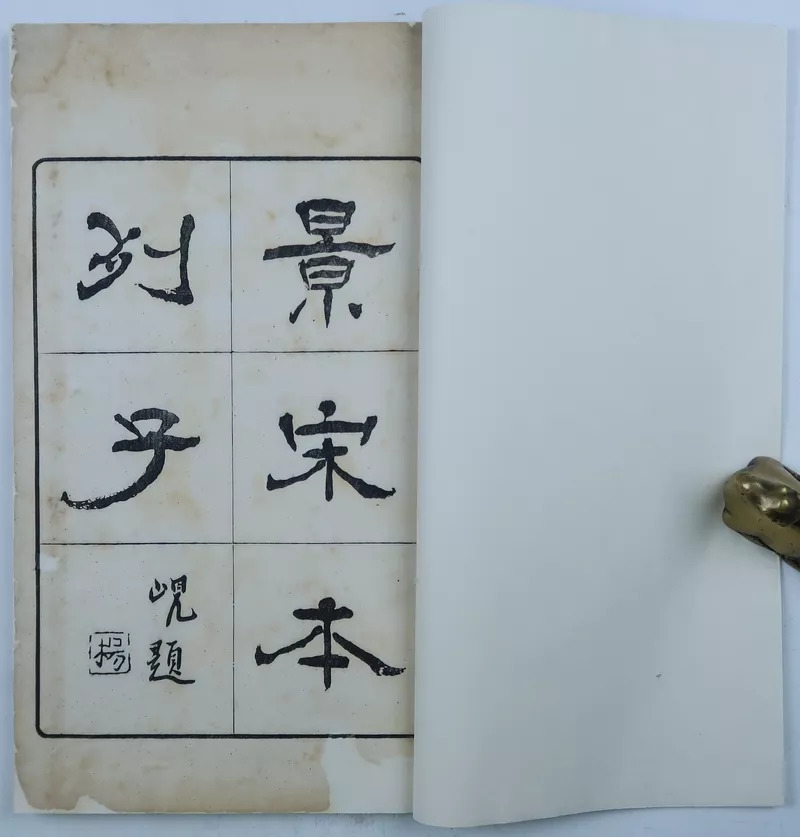 景宋本
列子
峴題
楊